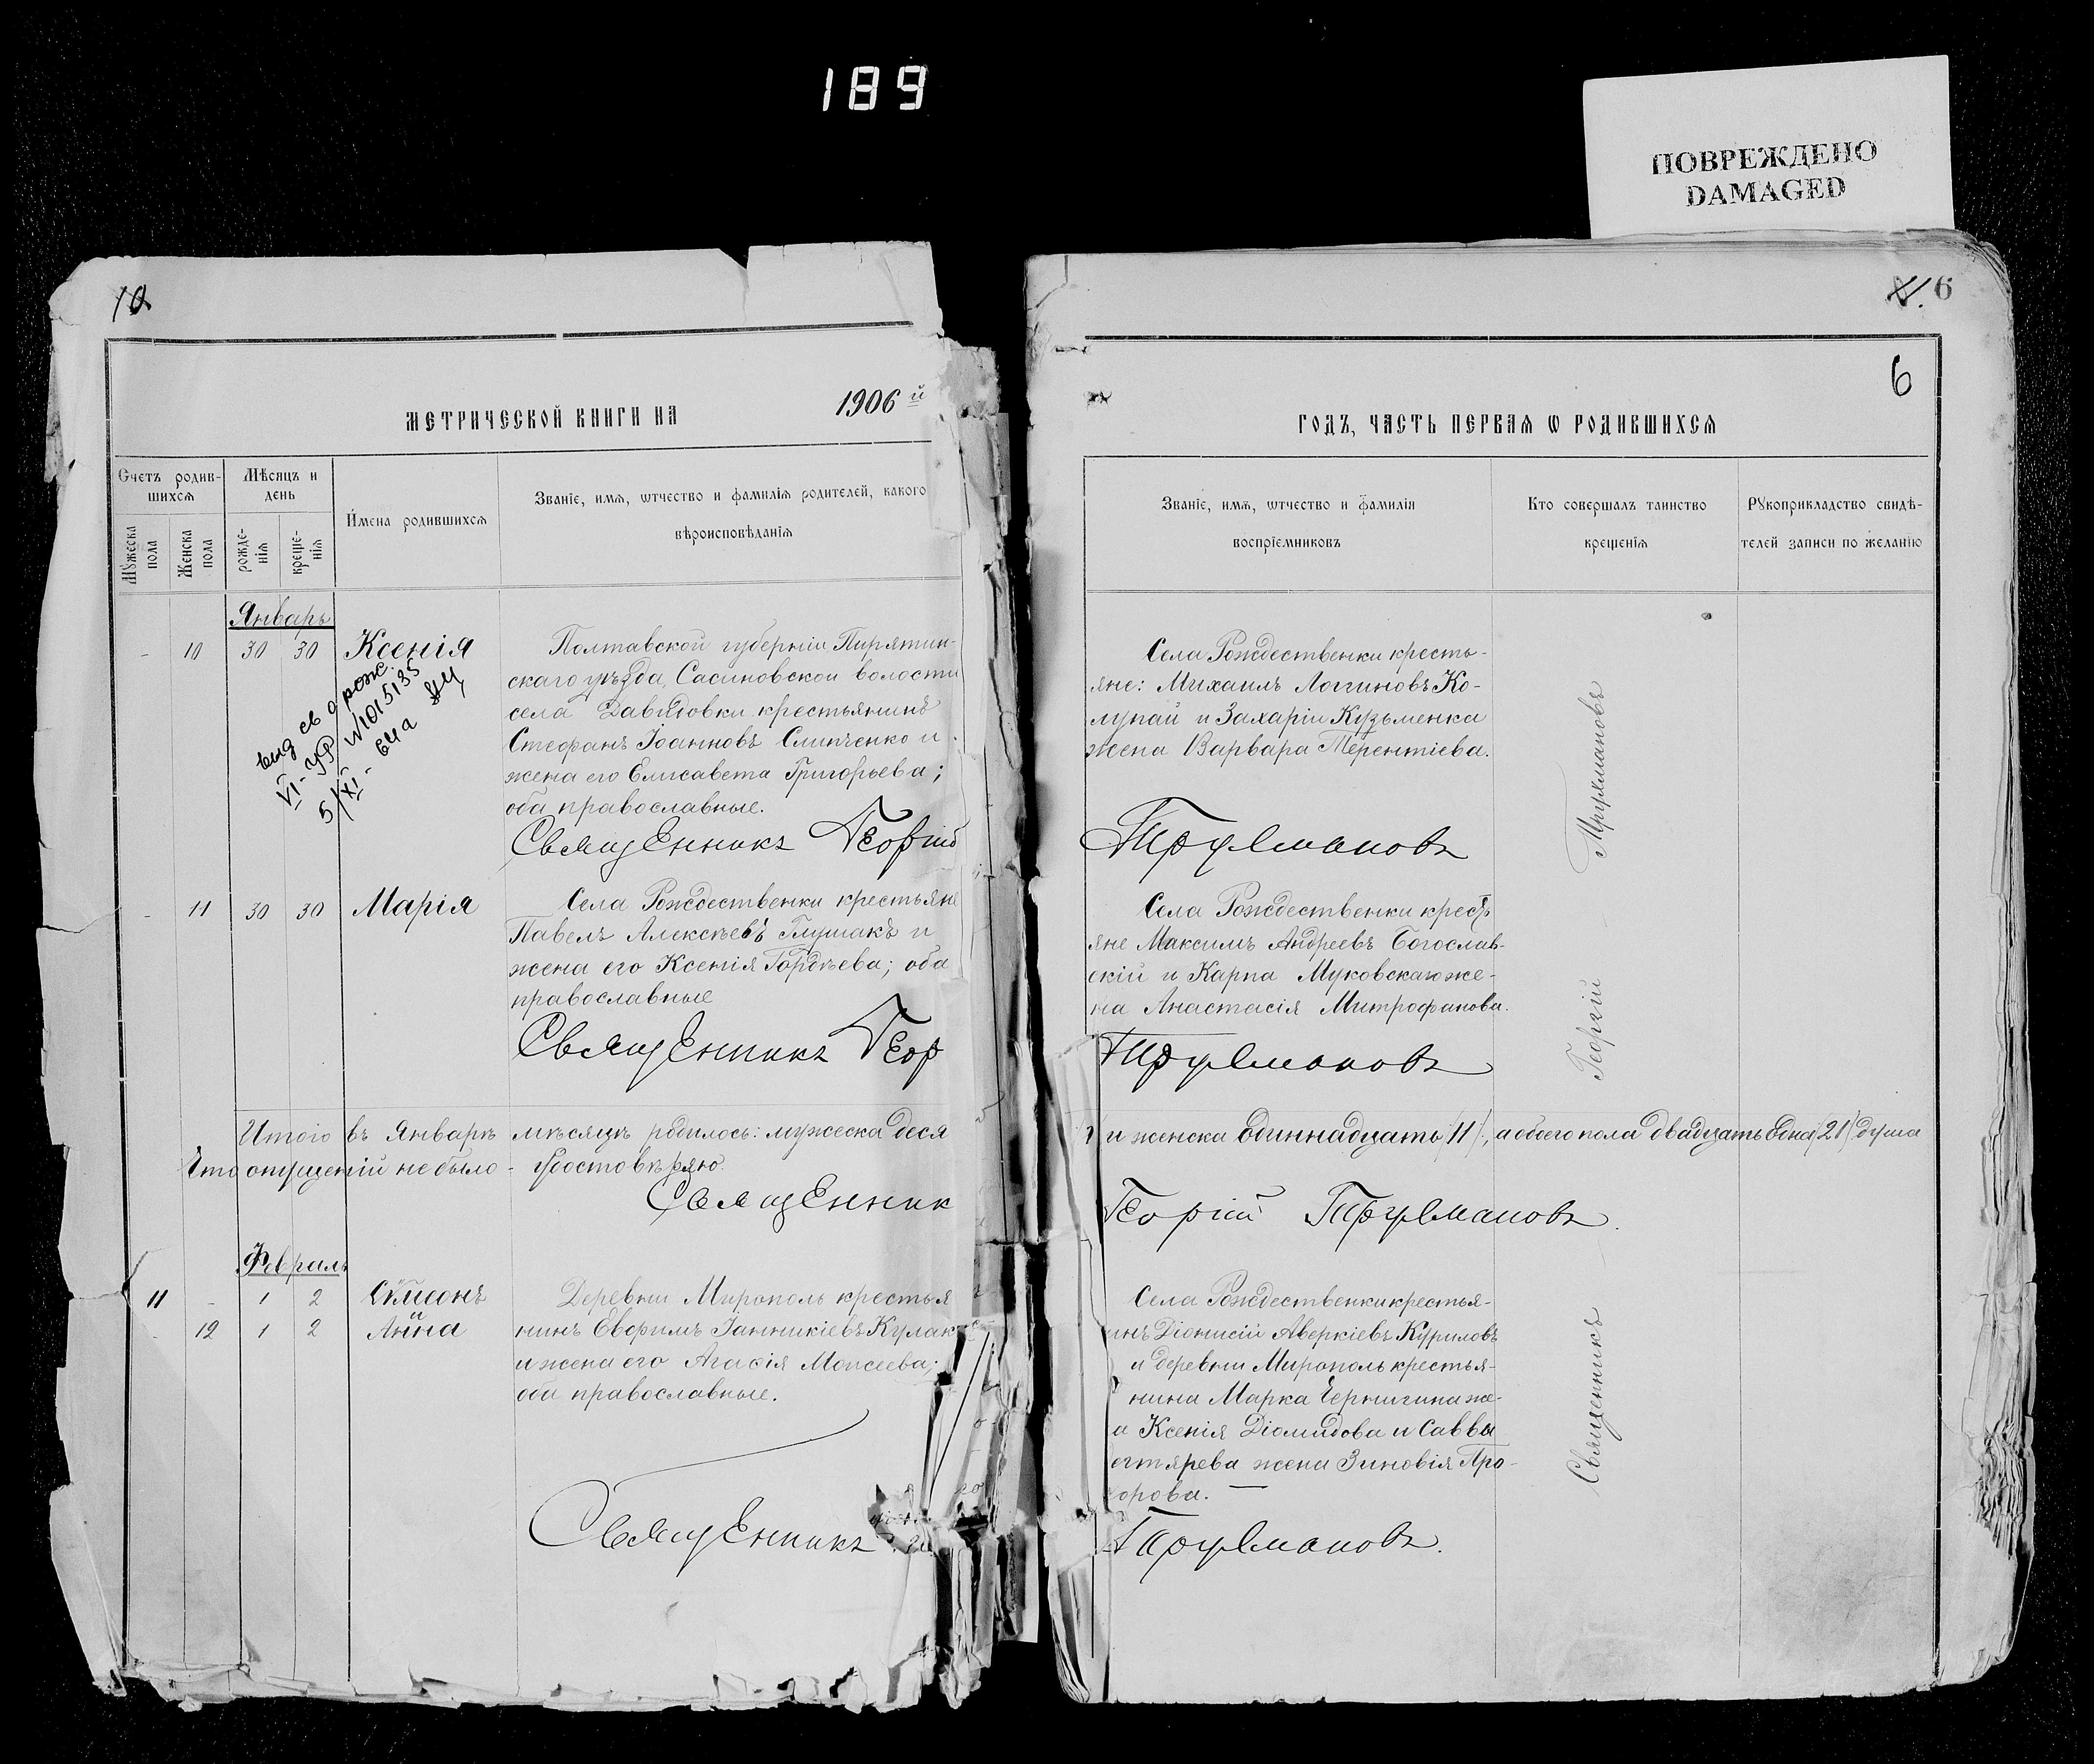 189
ПОВРЕЖДЕНО
DAMAGED
10
6
6
МЕТРИЧЕСКОЙ КНИГИ НА 1906 й
ГОДЪ, ЧАСТЬ ПЕРВАѦ Ѡ РОДИВШИХСѦ
Счетъ родив-
шихсѧ
Мѣсяцъ и
день
Мꙋжеска
пола
Женска
пола
рожде-
нїѧ
креще-
нїѧ
Имена родившихсѧ
Званїе, имѧ, ѿчество и фамилїѧ родителей, какого
вѣроисповѣданїѧ
Званїе, имѧ, ѿчество и фамилїѧ
воспрїемниковъ
Кто совершалъ таинство
крещенїѧ
Рꙋкоприкладство свидѣ-
телей записи по желанїю
Январь
- 10 30 30 Ксенія
выд св о рож.
VI-УР №1015135
5/XI-64а
Полтавской губерніи Пирятин-
скаго уѣзда, Сасиновской волости
села Давидовки крестьянинъ
Стефанъ Іоанновъ Слипченко и
жена его Елисавета Григорьева;
оба православные.
Священникъ Георгій
Села Рождественки кресть-
яне: Михаилъ Логгиновъ Ко-
лупай и Захаріи Кузьменка
жена Варвара Терентіева.
Трулмановъ
- 11 30 30 Марія
Села Рождественки крестьяне
Павелъ Алексѣевъ Глушакъ и
жена его Ксенія Гордѣева; оба
православные
Священникъ Геор
Села Рождественки кресть
яне Максимъ Андреевъ Богослав-
скій и Карпа Муковскаго же-
на Анастасія Митрофанова.
Трулмановъ
Итого въ Январѣ мѣсяцѣ родилось: мужеска деся
и женска одиннадцать /11/, а обоего пола двадцать одна /21/ душа
Что опущеній не было - удостовѣряю.
Священник
Георгій Трулмановъ.
Февраль
11 - 1 2 Сѵмеонъ
- 12 1 2 Анна
Деревни Мирополь крестья
нинъ Евфимъ Іанникіевъ Кулак
и жена его Агафія Моисеева;
оба православные.
Священникъ
Села Рождественки крестья-
инъ Діонисій Аверкіевъ Куриловъ
и деревни Мирополь крестья-
нина Марка Чернигина же-
а Ксенія Діомидова и Саввы
егтярева жена Зиновія Про-
орова. —
Трулмановъ.
Священникъ Георгій Трулмановъ